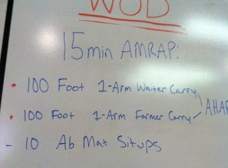 WOD
15 min AMRAP.
• 100 Foot 1-Arm Waiter Carry
• 100 Foot 1-Arm Farmer Carry
AHAP
- 10 Ab Mat Situps